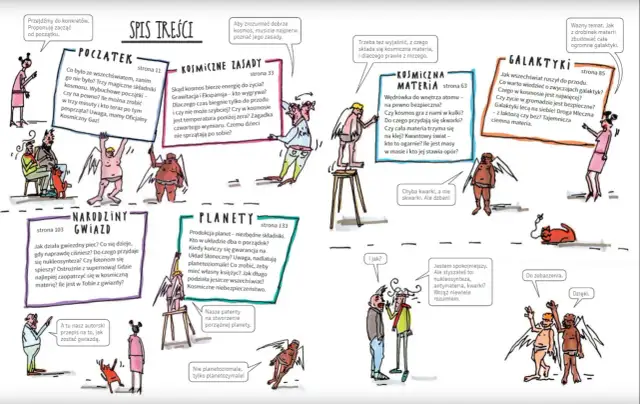 Przejdźmy do konkretów.
Proponuję zacząć
od początku.
SPIS TREŚCI
Aby zrozumieć dobrze
kosmos, musicie najpierw
poznać jego zasady.
POCZĄTEK
strona 11
Co było ze wszechświatem, zanim
go nie było? Trzy magiczne składniki
kosmosu. Wybuchowe początki –
czy na pewno? Ile można zrobić
w trzy minuty i kto teraz po tym
posprząta? Uwaga, mamy Oficjalny
Kosmiczny Gaz!
KOSMICZNE ZASADY
strona 33
Skąd kosmos bierze energię do życia?
Grawitacja i Ekspansja – kto wygrywa?
Dlaczego czas biegnie tylko do przodu
i czy nie może szybciej? Czy w kosmosie
jest temperatura poniżej zera? Zagadka
czwartego wymiaru. Czemu dzieci
nie sprzątają po sobie?
Trzeba też wyjaśnić, z czego
składa się kosmiczna materia,
i dlaczego prawie z niczego.
KOSMICZNA
MATERIA
strona 63
Wędrówka do wnętrza atomu –
na pewno bezpieczna?
Czy kosmos gra z nami w kulki?
Do czego przydają się skwarki?
Czy cała materia trzyma się
na klej? Kwantowy świat –
kto to ogarnie? Ile jest masy
w masie i kto jej stawia opór?
Ważny temat. Jak
z drobinek materii
zbudować całą
ogromną galaktykę.
GALAKTYKI
strona 85
Jak wszechświat ruszył do przodu.
Co warto wiedzieć o zwyczajach galaktyk?
Czego w kosmosie jest najwięcej?
Czy życie w gromadzie jest bezpieczne?
Galaktyki lecą na siebie! Droga Mleczna
– z laktozą czy bez? Tajemnicza
ciemna materia.
Chyba kwarki, a nie
skwarki. Ale debani!
NARODZINY
GWIAZD
strona 103
Jak działa gwiezdny piec? Co się dzieje,
gdy naprawdę ciśniesz? Do czego przydaje
się nukleosynteza? Czy fotonom się
spieszy? Ostrożnie z supernową! Gdzie
najlepiej zaopatrzyć się w kosmiczną
materię? Ile jest w Tobie z gwiazdy?
PLANETY
strona 133
Produkcja planet – niezbędne składniki.
Kto w układzie dba o porządek?
Kiedy kończy się gwarancja na
Układ Słoneczny? Uwaga, nadlatują
planetozymale! Co zrobić, żeby
mieć własny księżyc? Jak długo
podziała jeszcze wszechświat?
Kosmiczne Niebezpieczeństwo.
A tu nasz autorski
przepis na to, jak
zostać gwiazdą.
Nasze patenty
na stworzenie
porządnej planety.
Nie planetozremale,
tylko planetozymale!
I jak?
Jestem spokojniejszy.
Ale styszałeś to:
nukleosynteza,
antymateria, kwarki?
Wciąż niewiele
rozumiem.
Do zobaczenia.
Dzięki.